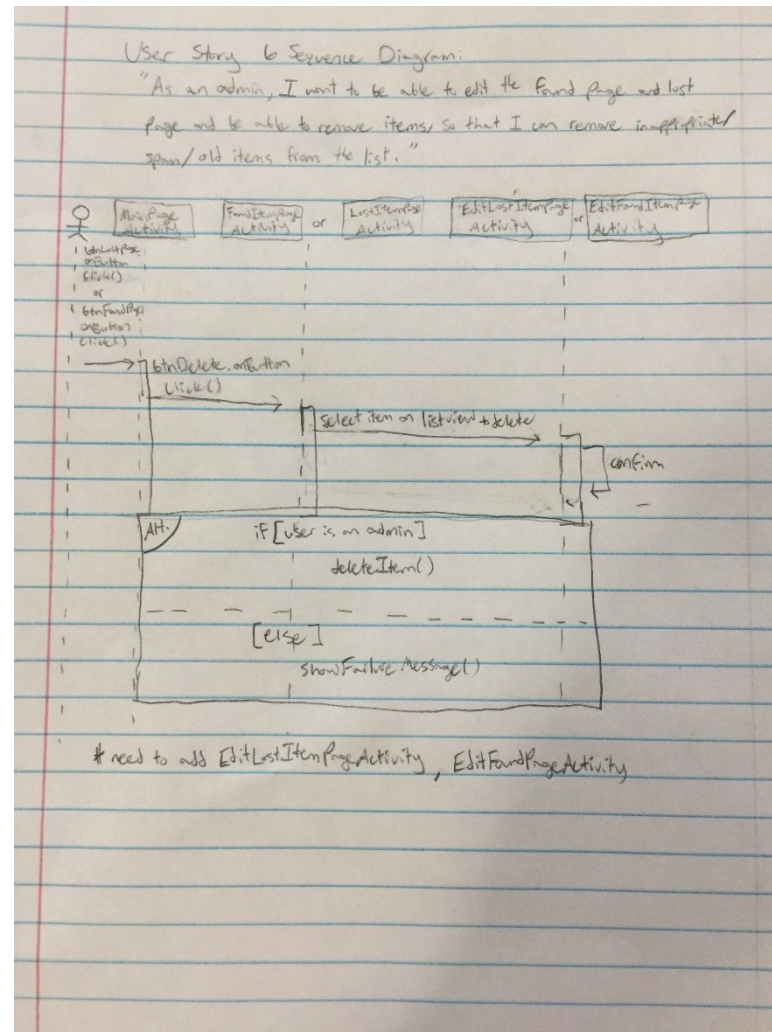 User Story 6 Sequence Diagram:
"As an admin, I want to be able to edit the found page and lost
page and be able to remove items, so that I can remove inappropriate/
spam/old items from the list."
MainPage
Activity
FoundItemPage
Activity
or
LostItemPage
Activity
EditLostItemPage
Activity
or
EditFoundItemPage
Activity
btnLostPage.
onButton
Click()
or
btnFoundPage
onButton
Click()
btnDelete.onButton
Click()
select item on listview to delete
confirm
Alt.
if [user is an admin]
deleteItem()
[else]
showFailureMessage()
* need to add EditLostItemPageActivity, EditFoundPageActivity